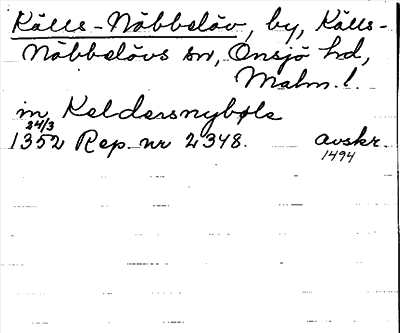 Källs-Nöbbelöv, by, Källs-
Nöbbelövs sn, Onsjö hd,
Malm. l.
in Keldersnybøle
24/3
1352 Rep. nr 2348. avskr.
1494